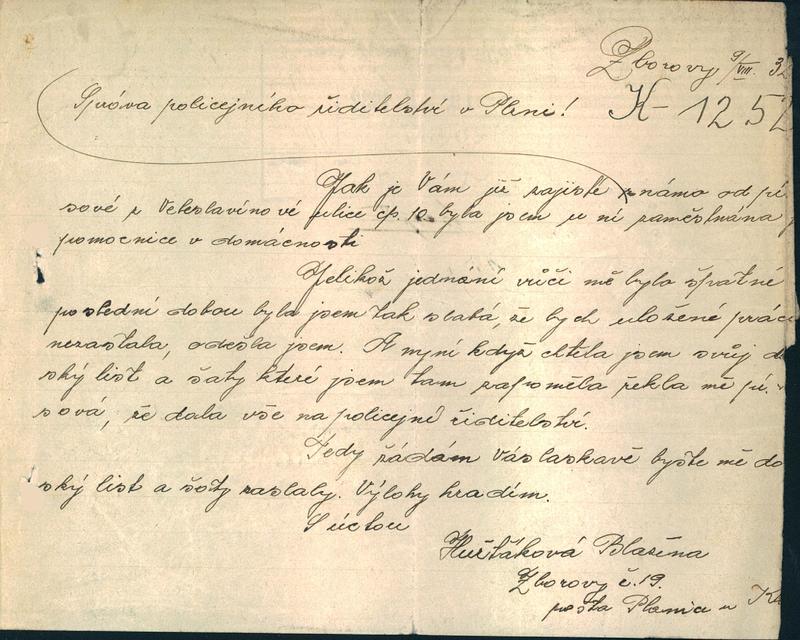 Zborovy 9/VIII. 32
K-1252
Správa policejního řiditelství v Plzni!
Jak je Vám již zajisté známo od pí
sové z Veleslavínové ulice čp. 10 byla jsem u ní zaměstnána
pomocnice v domácnosti
Jelikož jednání vůči mě bylo špatné
poslední dobou byla jsem tak slabá, že bych uložené práce
nezastala, odešla jsem. A nyní když chtěla jsem svůj do
ský list a šaty které jsem tam zapoměla řekla mě pí.
sová, že dala vše na policejní řiditelství.
Tedy žádám Vás laskavě byste mě do
ský list a šaty zaslaly. Výlohy hradím.
S úctou
Hušťáková Blažena
Zborovy č. 19.
pošta Plánice u